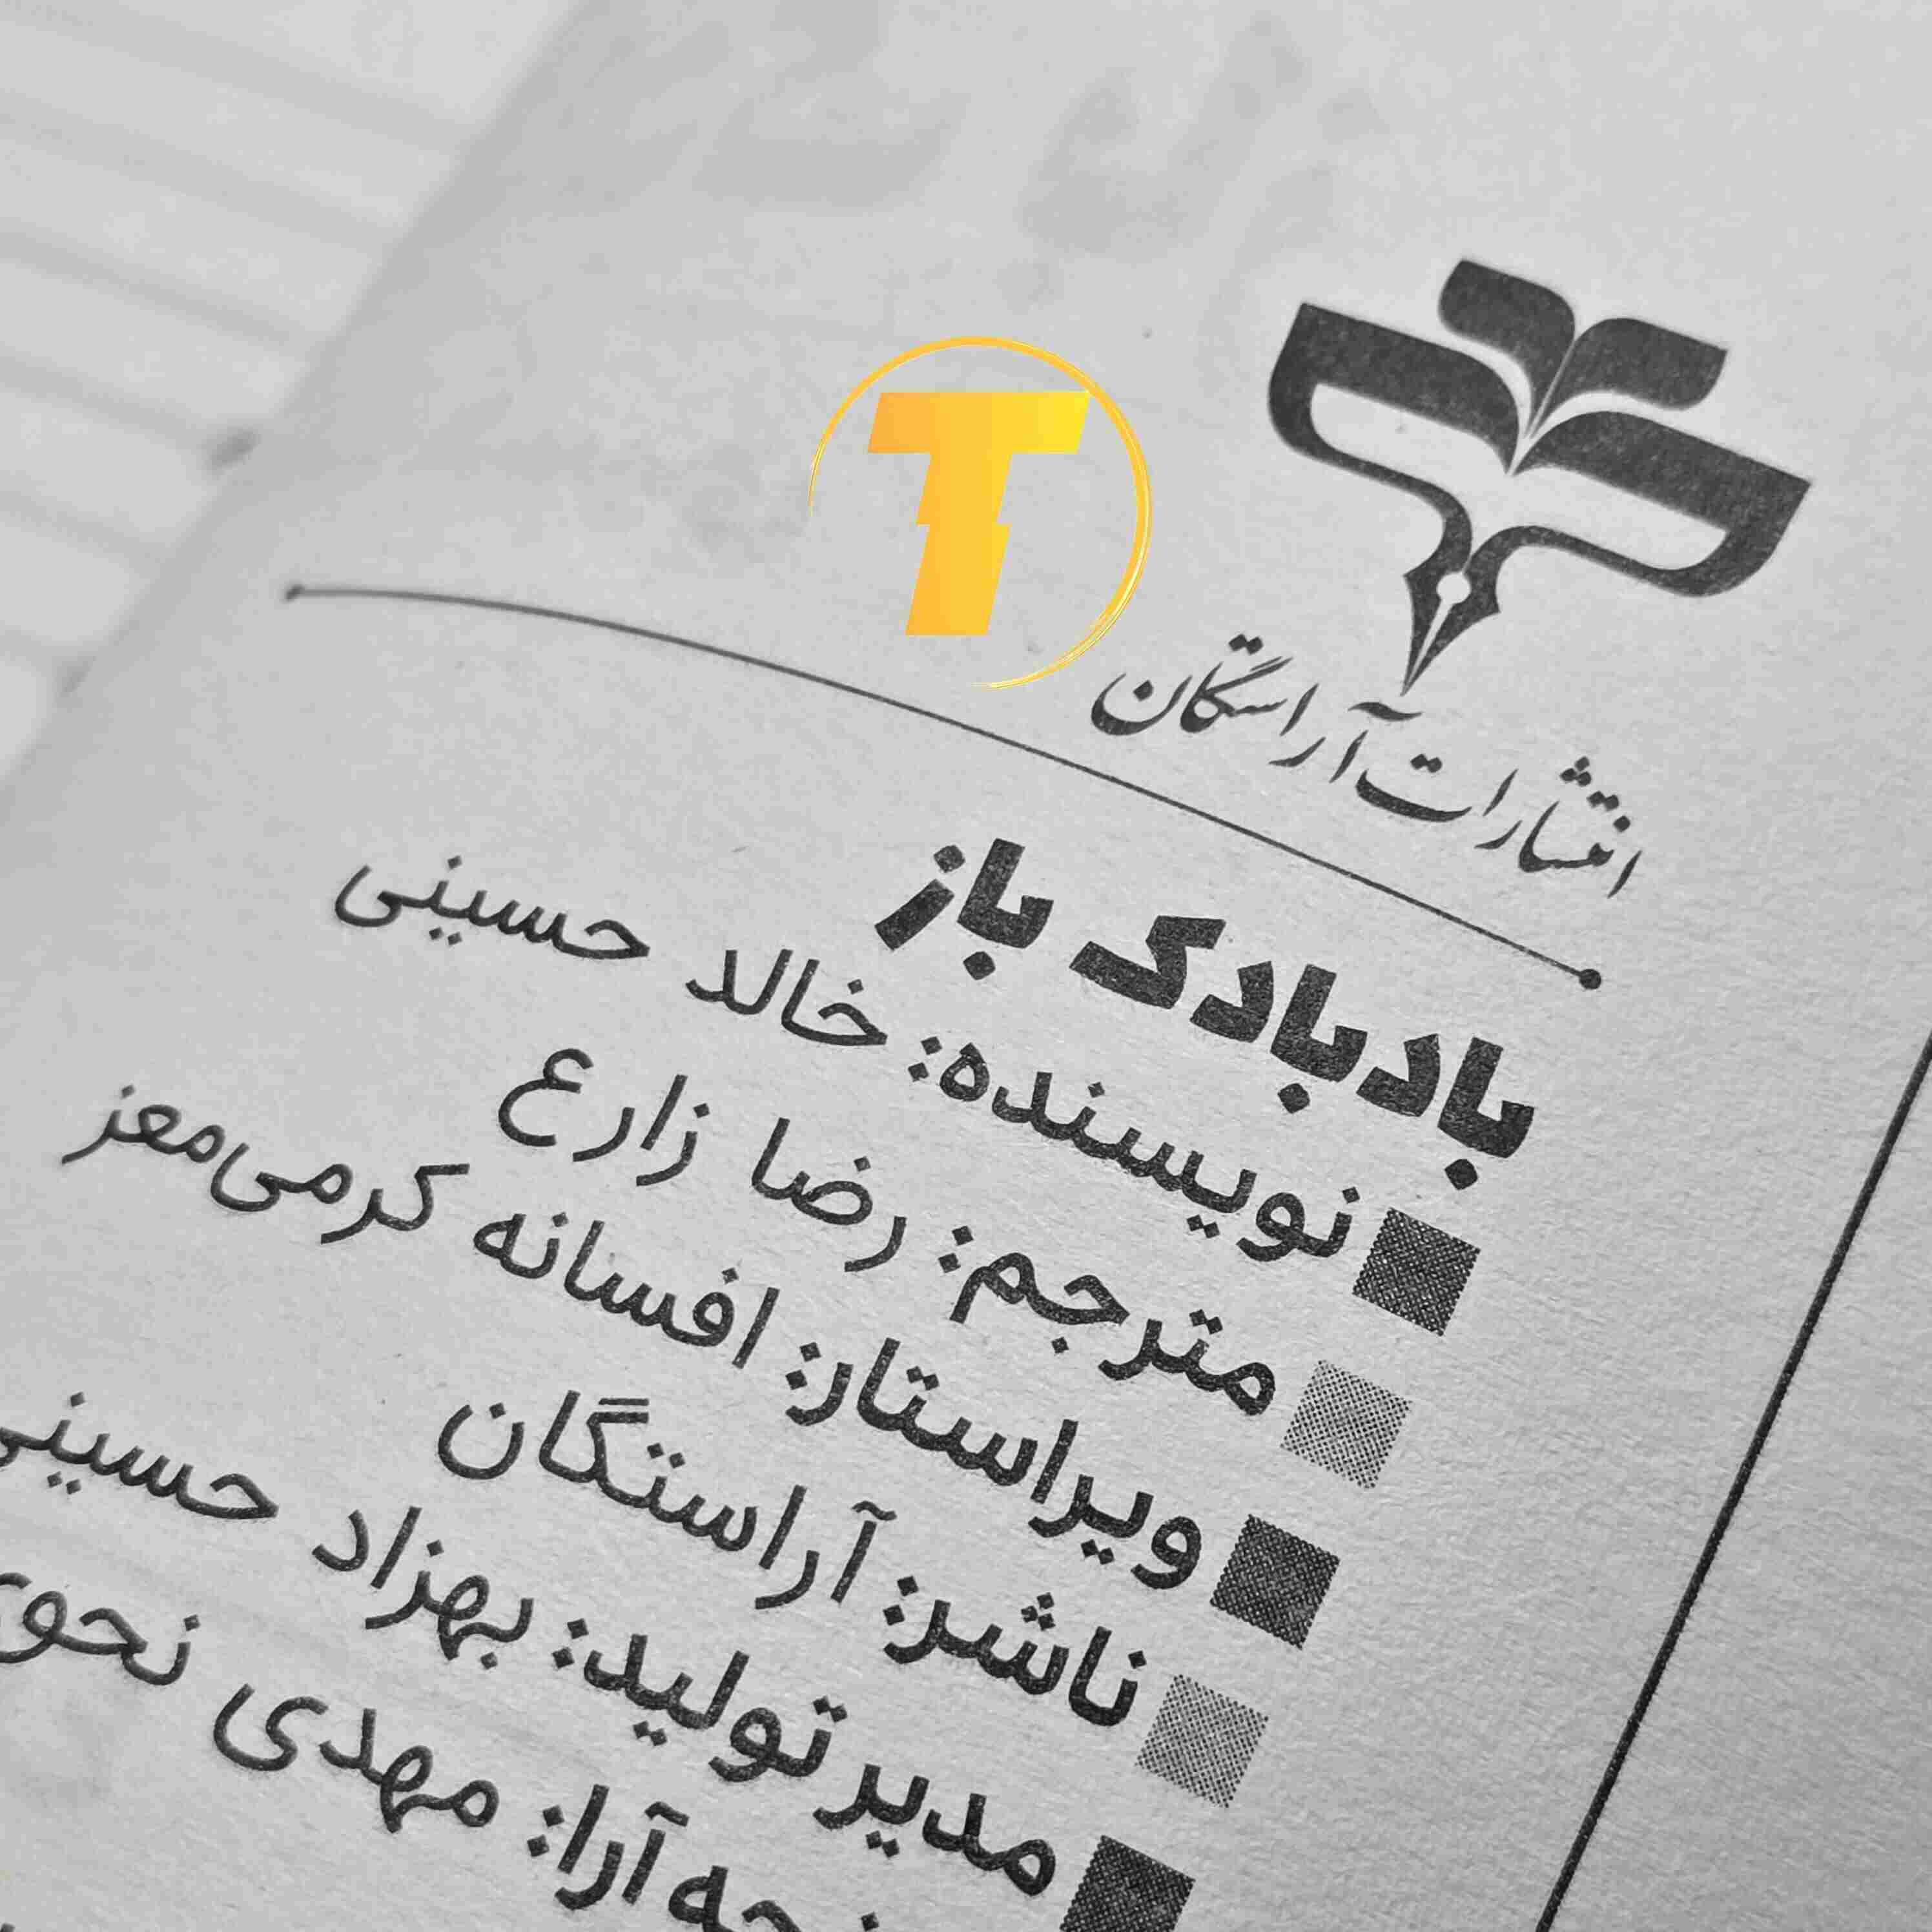 T
انتشارات آراستگان
بادبادک باز
نویسنده: خالد حسینی
مترجم: رضا زارع
ویراستار: افسانه کرمی‌معز
ناشر: آراستگان
مدیر تولید: بهزاد حسینی
آرا: مهدی